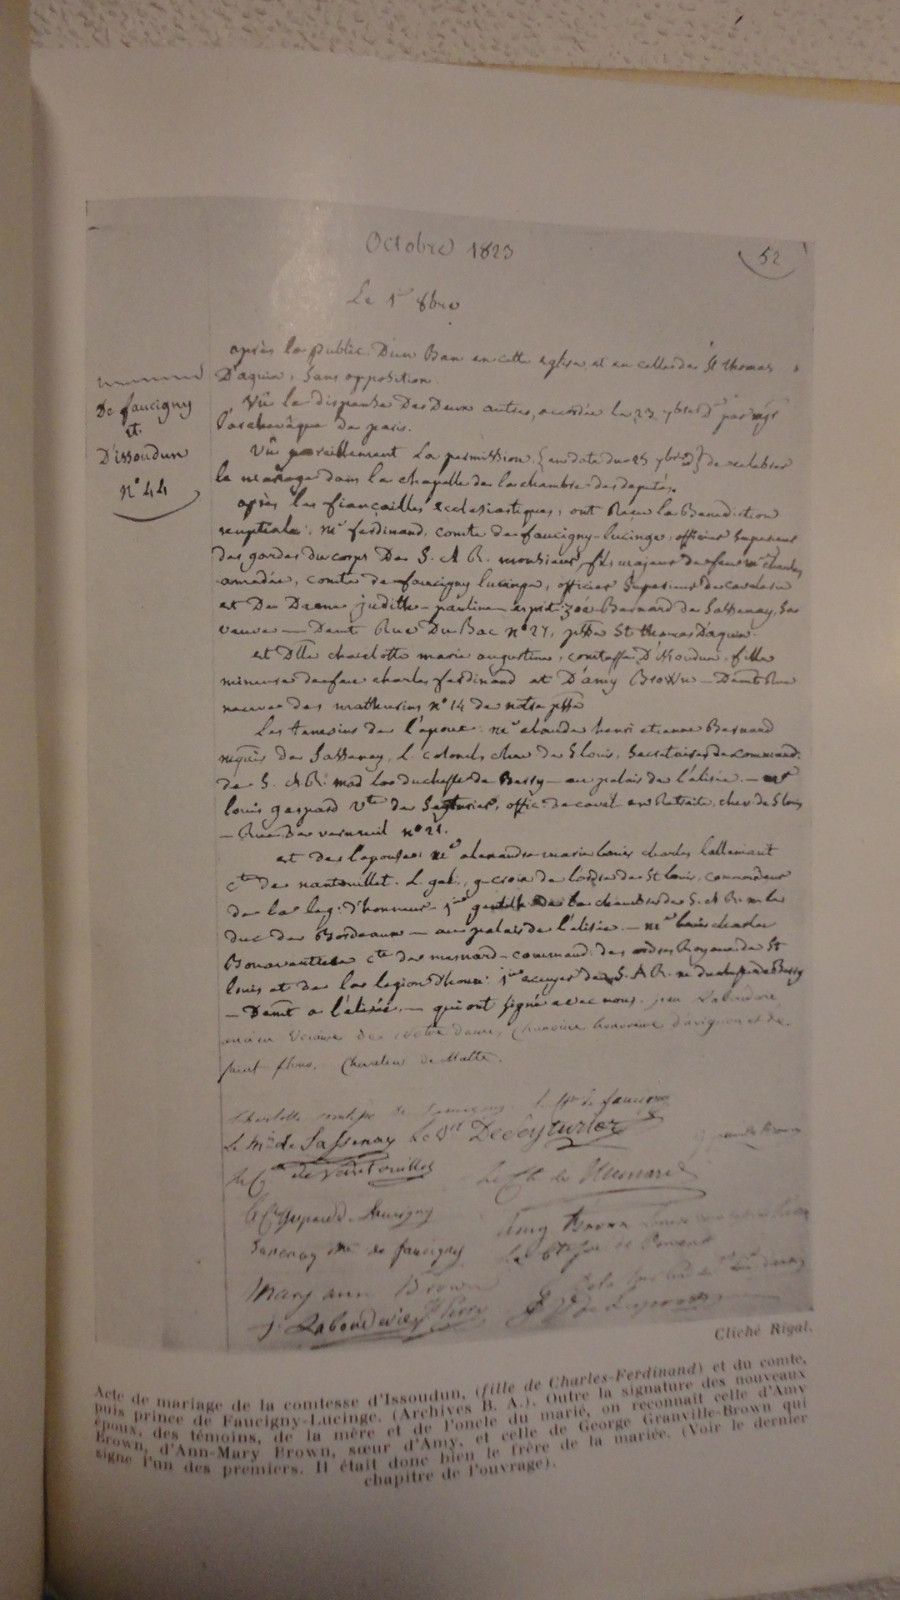 Octobre 1823
52
Le 1er 8bre
De faucigny
et
D'issoudun
n° 44
après la public. D'un Ban en cette eglise et en celle de St thomas
D'aquin, sans opposition
Vu la dispense Des Deux autres, accordée le 23 7bre par mgr
l'archevêque de paris.
Vu pareillement la permission (en date du 25 7bre) de celebrer
le mariage dans la chapelle de la chambre des deputés.
après les fiançailles ecclesiastiques, ont Reçu la Benediction
nuptiale: mr ferdinand, comte de faucigny-lucinge, officier superieur
des gardes du corps De S. A R. monsieur, fils majeur de feu mr charles
amedée, comte de faucigny lucinge, officier superieur de cavalerie
et De Dame judith-pauline-esprit zoé Bernard de Sassenay, sa
veuve — Demt Rue Du Bac n° 27, psse St thomas D'aquin.
et Dlle charlotte marie augustine, comtesse D'issoudun, fille
mineure de charles ferdinand et D'amy Brown — Demt Rue
neuve des mathurins n° 14 de notre psse
Les temoins de l'epoux: mr claude henri etienne Bernard
mquis de Sassenay, l. colonel, chev de St louis, Secretaire des command.
de S. A R. mad la duchesse de Berry — au palais de l'elisée — mr
louis gaspard Vte de Seyturier, offic. de caval en Retraite, chev de St louis
— Rue De verneuil n° 21.
et de l'epouse: mr alexandre-marie louis charles lallemant
cte de nantouillet. l. gal, g-croix de l'ordre de St louis, commandeur
de la leg. d'honneur — 1er gentilh. de la chambre de S. A R. m le
duc de Bordeaux — au palais de l'elisée — mr louis charles
Bonaventure cte de mesnard — command. des ordres Royaux de St
louis et de la legion d'honn. 1er ecuyer de S. A R. me duchesse de Berry
— Demt a l'elisée — qui ont signé avec nous. jean
ancien Vicaire de Notre dame, chanoine honoraire d'avignon et de
saint flour. Chevalier de Malte.
Charlotte comtesse de
Le Mis de Sassenay Le Vte De Seyturier
Le Cte de Nantouillet Le Cte de Mesnard
Amy Brown
Sassenay de faucigny
Mary ann Brown
Cliché Rigal.
Acte de mariage de la comtesse d'Issoudun, (fille de Charles-Ferdinand) et du comte,
puis prince de Faucigny-Lucinge. (Archives B. A.). Outre la signature des nouveaux
époux, des témoins, de la mère et de l'oncle du marié, on reconnaît celle d'Amy
Brown, d'Ann-Mary Brown, sœur d'Amy, et celle de George Granville-Brown qui
signe l'un des premiers. Il était donc bien le frère de la mariée. (Voir le dernier
chapitre de l'ouvrage).